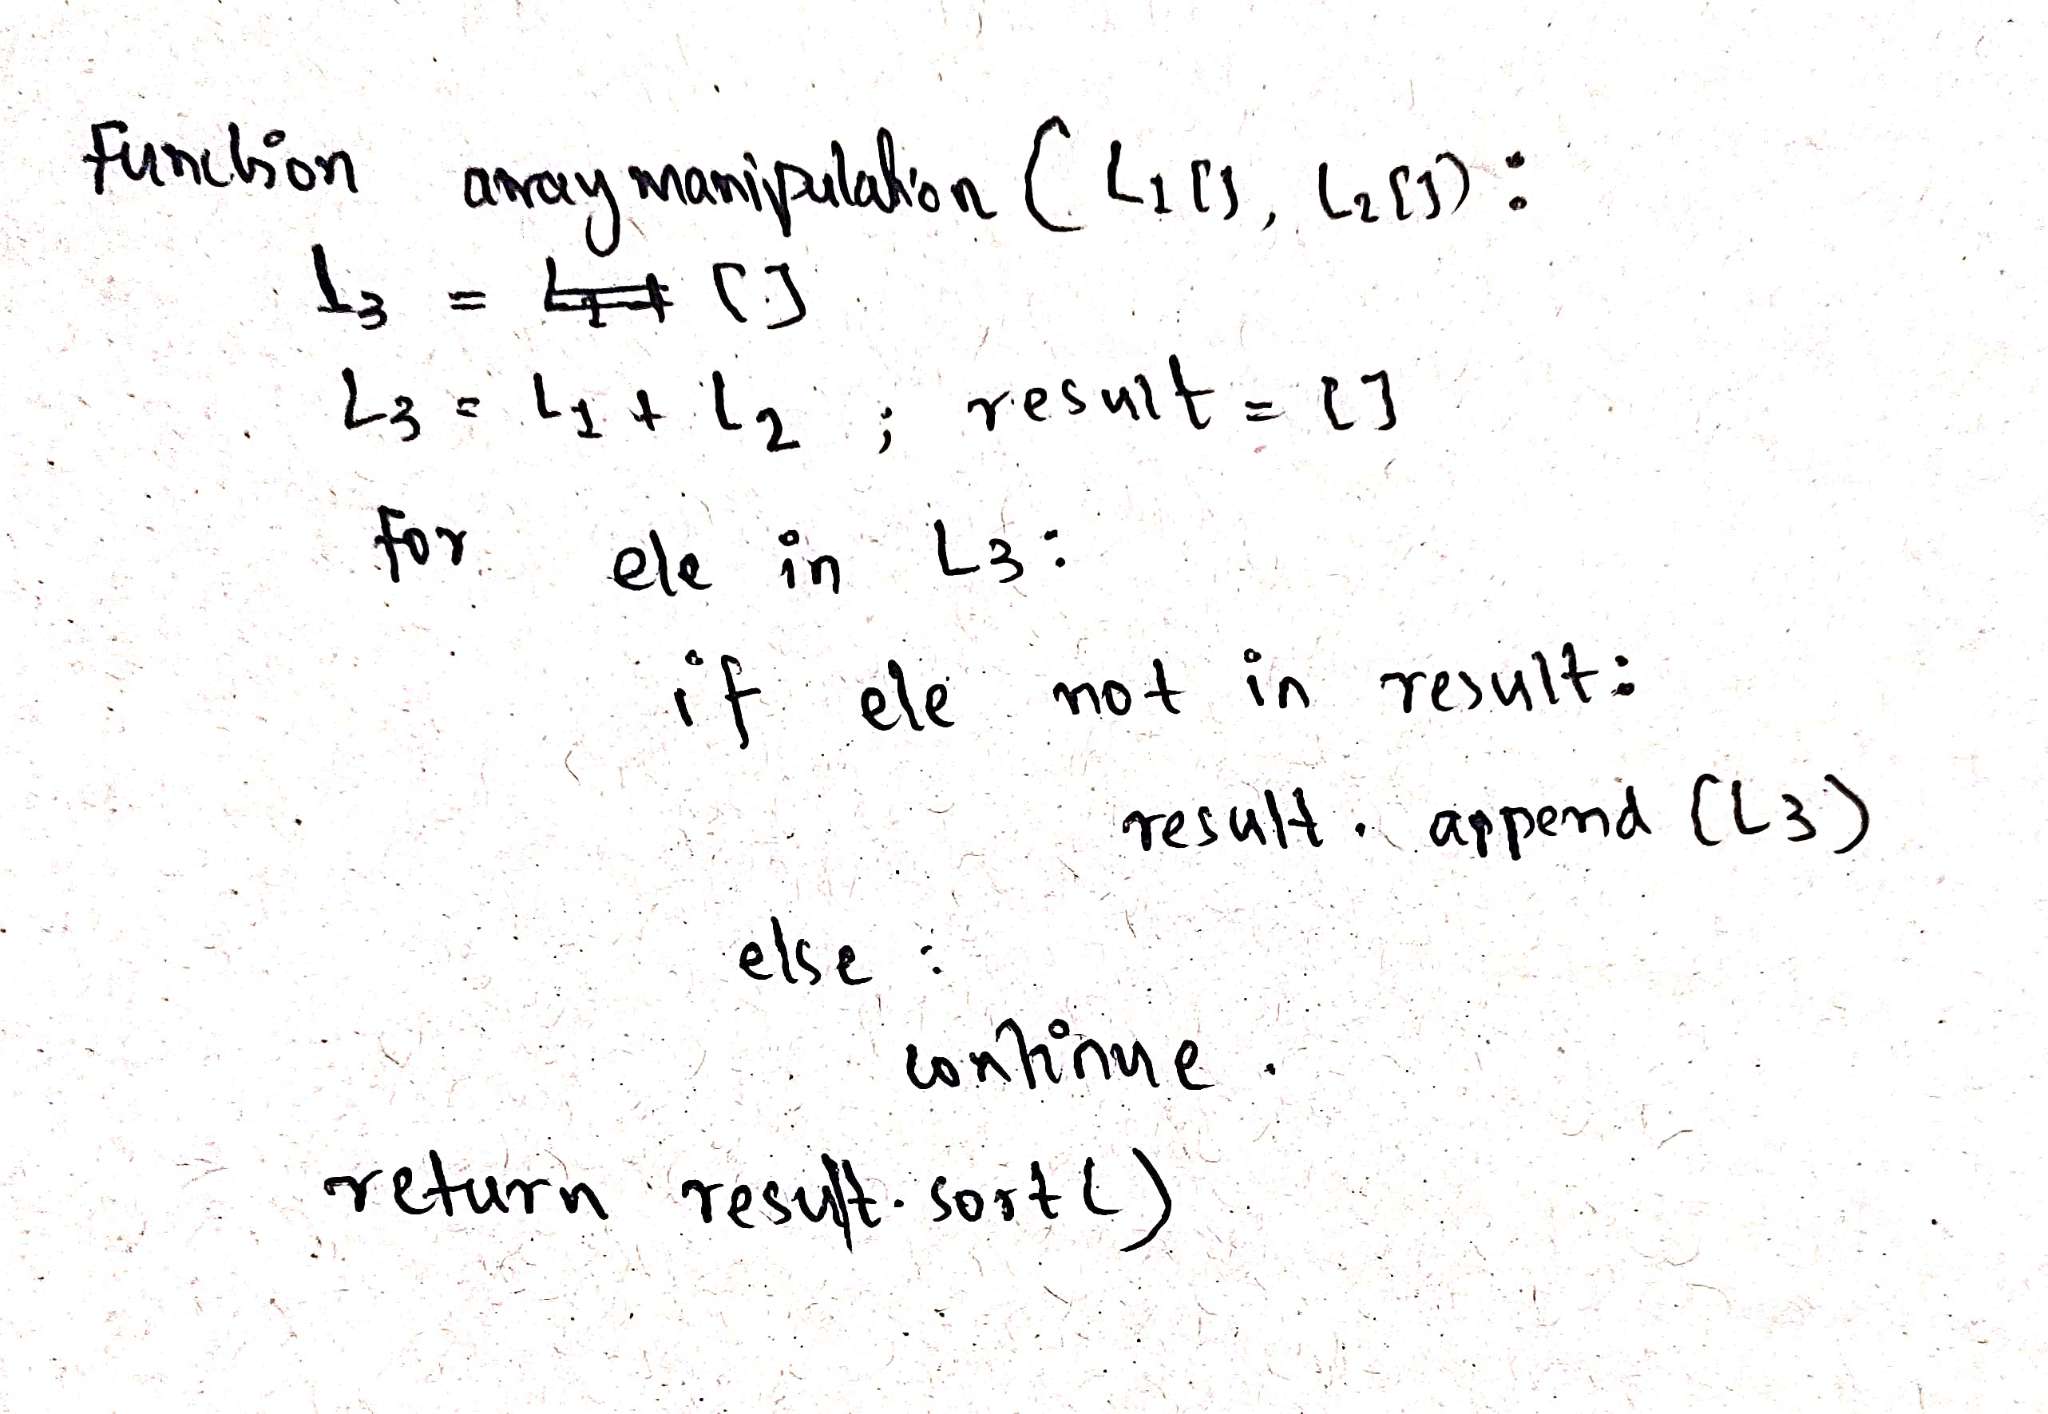 Function arraymanipulation ( L1[], L2[]) :
L3 = []
L3 = L1 + L2 ; result = []
for ele in L3 :
if ele not in result :
result . append (L3)
else :
continue .
return result.sort()